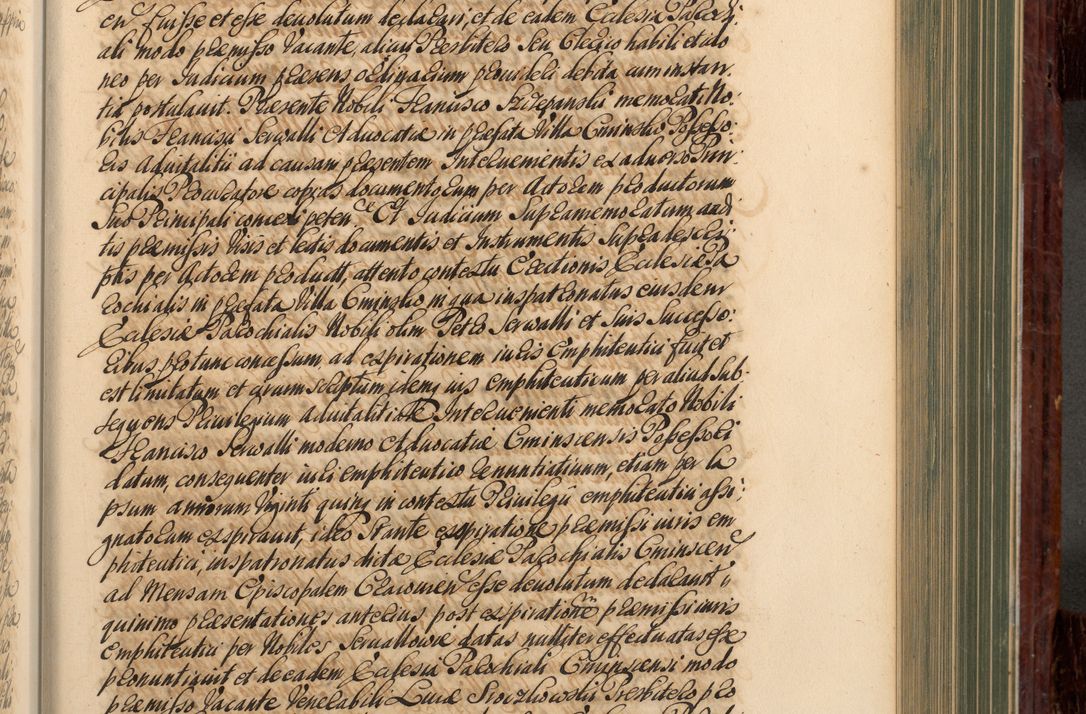 en fuisse et esse devolutum declarari, et de eadem Ecclesia Parochi
ali modo præmisso Vacante, alicui Presbitero Seu Clerico habili et ido
neo per Judicium præsens ordinarium provideri debita cum instan.
tia postulavit. Præsente Nobili Francisco Szczepanski memorati No:
bilis Francisci Serwalli Advocatiæ in præfata Villa Cminsko Possesso:
ris Advitalitii ad causam præsentem Intervenientis ex adverso Prin:
cipalis Procuratore copias documentorum per Actorem productorum
Suo Principali concedi peten Et Judicium Supramemoratum, audi
tis præmissis Visis et lectis documentis et Instrumentis Supradescri
ptis per Actorem product, attento contextu Erectionis Ecclesiæ Pa
rochialis in præfata Villa Cminsko in qua iuspatronatus eiusdem
Ecclesiæ Parochialis Nobili olim Petro Serwalli et Suis Successo:
ribus pro tunc concessum, ad expirationem iuris Emphiteutici fuit et
est limitatum et circumscriptum, idem ius emphiteuticum per aliud Sub-
sequens Privilegium advitalitium Intervenienti memorato Nobili
Francisco Serwalli moderno Advocatiæ Cminscensis Possessori
datum, consequenter iuri emphiteutico renuntiatum, etiam per la
psum annorum Viginti quinq in contextu Privilegii emphiteutici assi:
gnatorum expiravit, ideo Stante expiratione præmissi iuris em
phiteutici, iuspatronatus dictæ Ecclesiæ Parochialis Cminscen
ad Mensam Episcopalem Cracovien esse devolutum declaravit,
quinimo præsentationes anterius post expirationem præmissi iuris
Emphiteutici per Nobiles Serwallowie datas nulliter effectuatas esse
pronuntiavit et de eadem Ecclesia Parochiali Cminscensi modo
præmisso Vacante Venerabili Lucæ Procz­kowski Presbitero pro